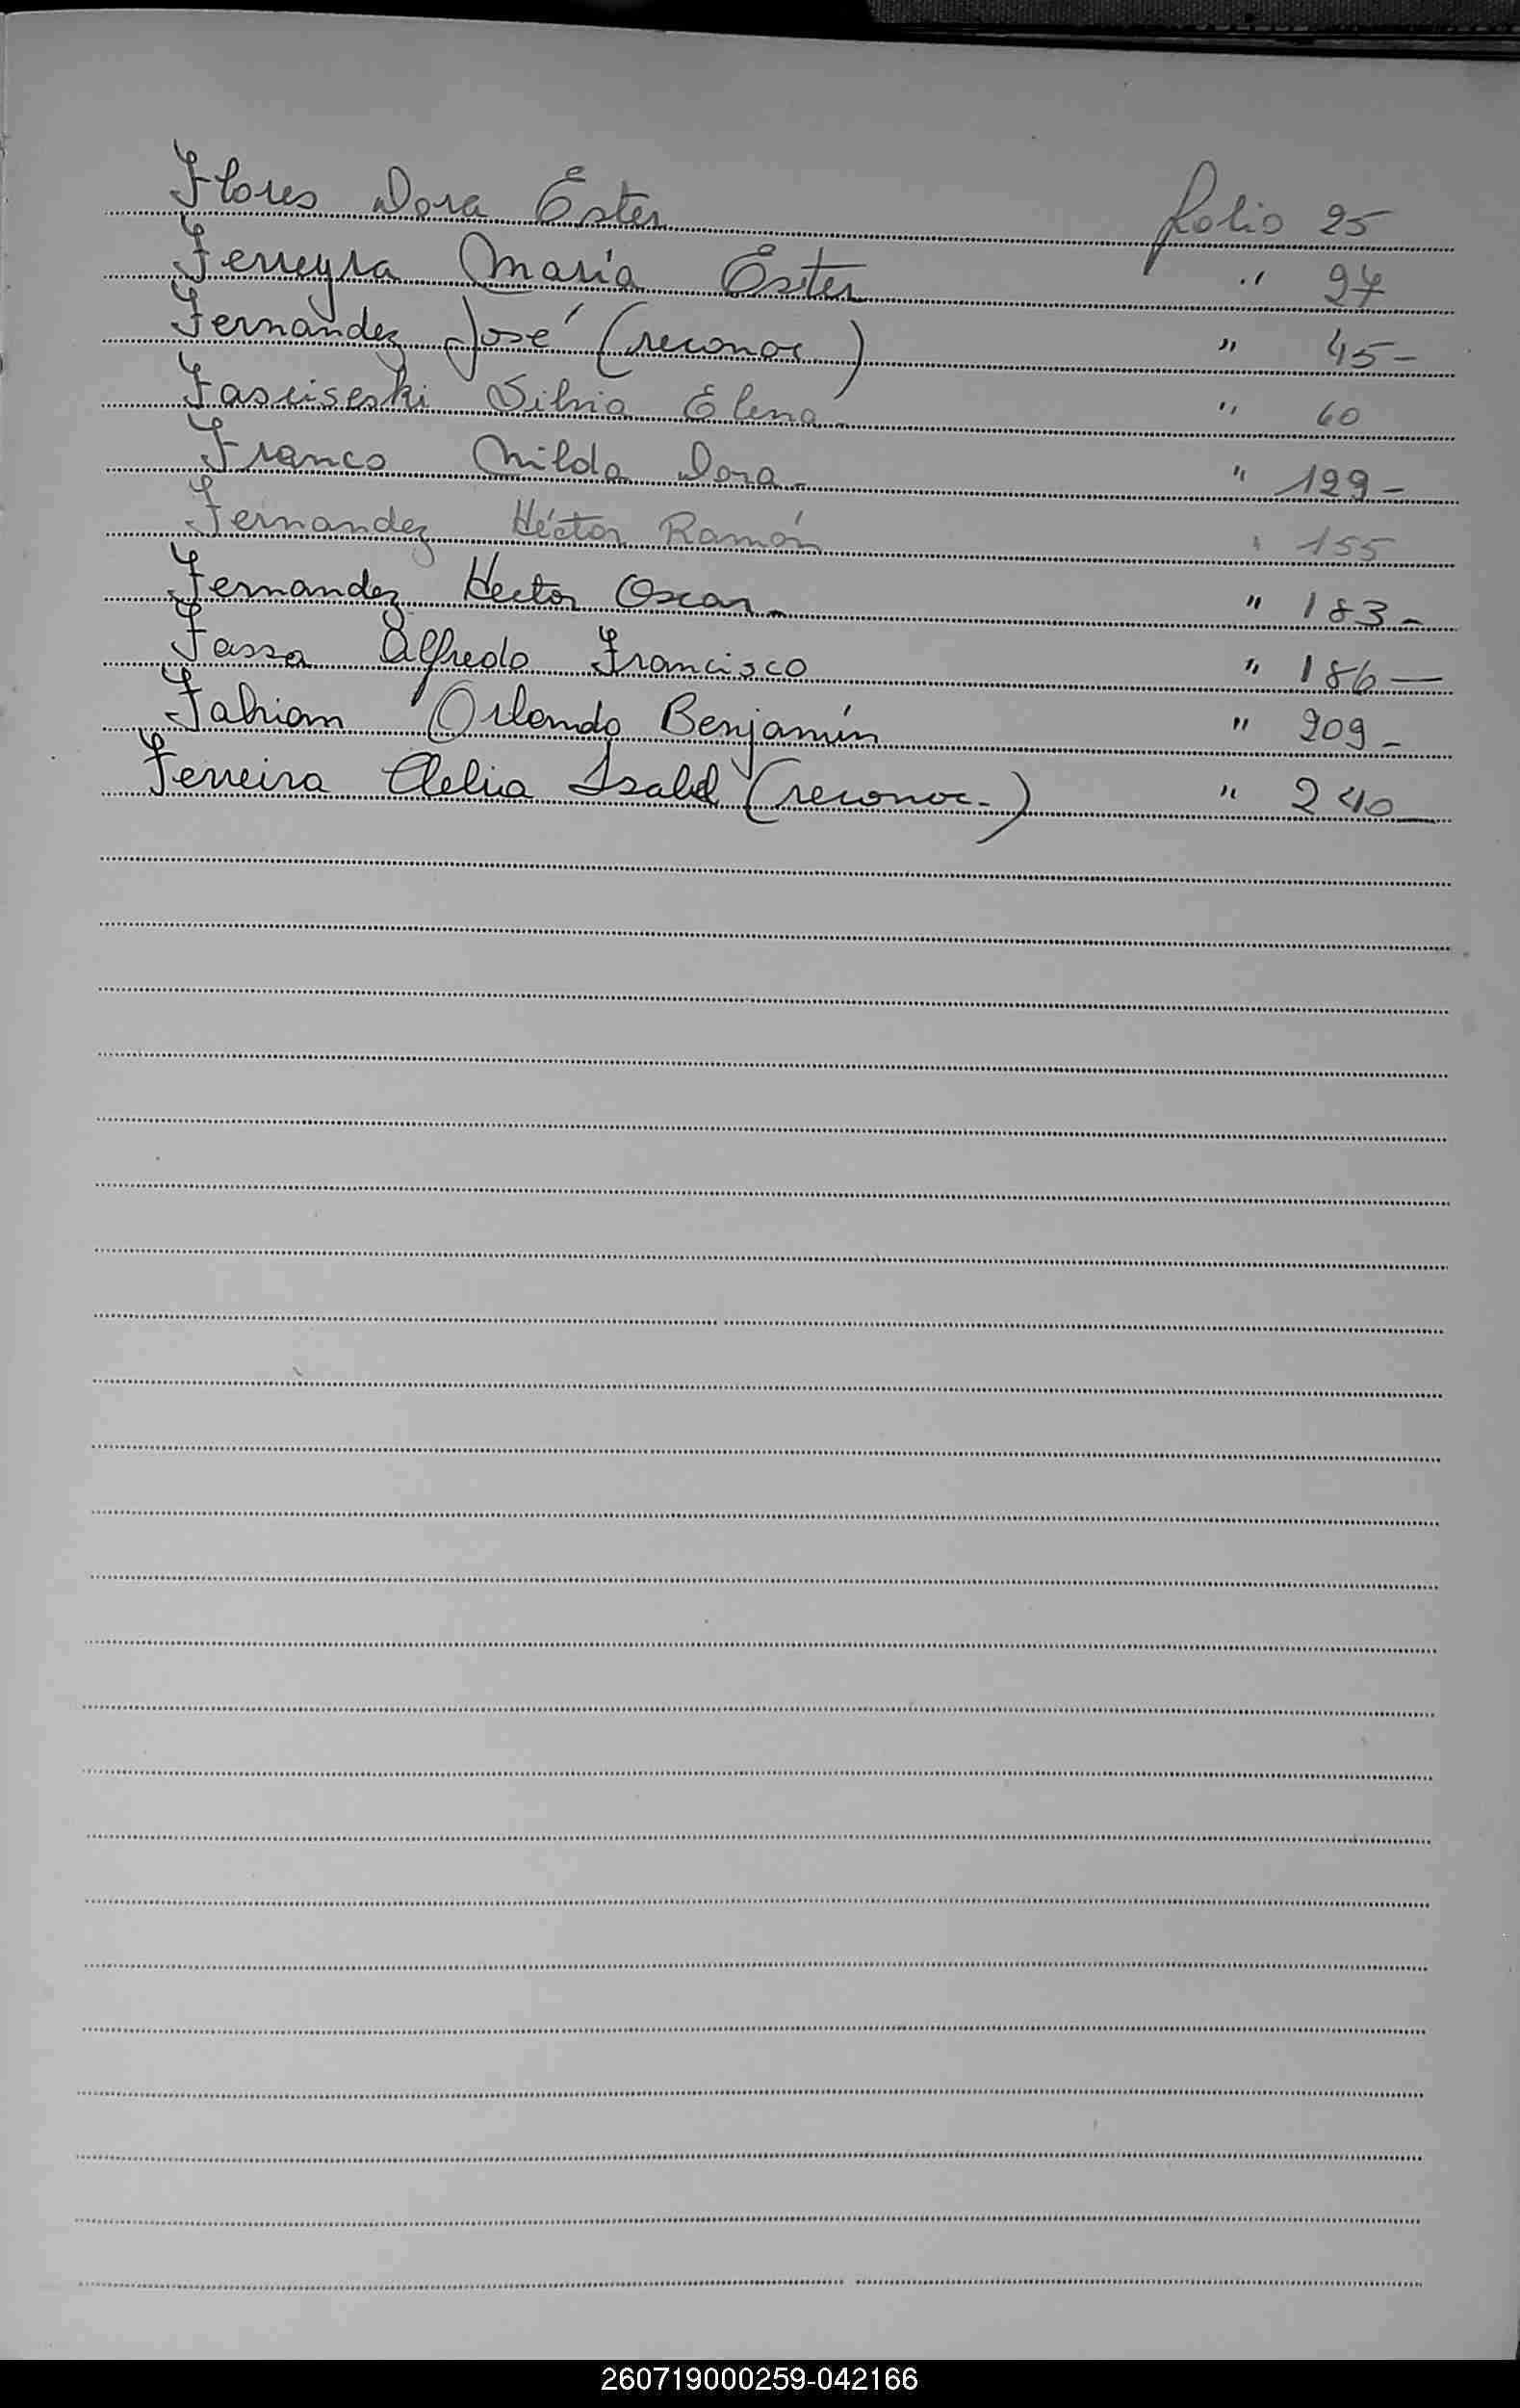 Flores Dora Ester folio 25
Ferreyra Maria Ester " 27
Fernández José (reconoc.) " 45-
Fasciseski Silvia Elena- " 60
Franco Nilda Dora- " 129-
Fernandez Héctor Ramón " 155
Fernandez Hector Oscar- " 183-
Fassa Alfredo Francisco " 186-
Fabian Orlando Benjamín " 209-
Ferreira Clelia Isabel (reconoc-) " 240-
260719000259-042166